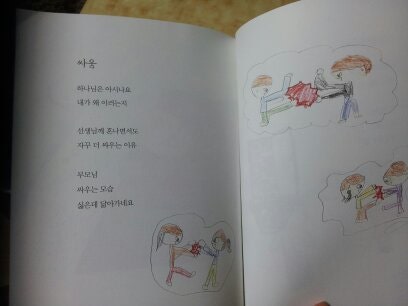 싸움
하나님은 아시나요
내가 왜 이러는지
선생님께 혼나면서도
자꾸 더 싸우는 이유
부모님
싸우는 모습
싫은데 닮아가네요